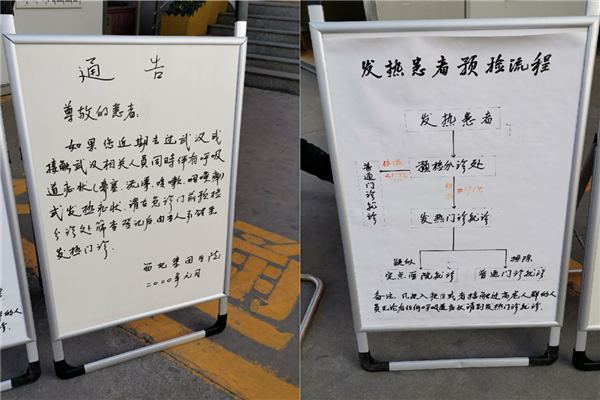 通告
尊敬的患者:
如果您近期去过武汉或
接触武汉相关人员同时伴有呼吸
道症状(鼻塞、流涕、咳嗽、咽喉痛)
或发热症状,请在急诊门前预检
分诊处筛查登记后由专人引领至
发热门诊.
集团医院
二0二0年元月
发热患者预检流程
发热患者
预检分诊处
体温
普通门诊就诊
发热门诊就诊
疑似 排除
定点医院就诊 普通门诊就诊
备注:凡
员无论有任何呼吸道症状请到发热门诊就诊.